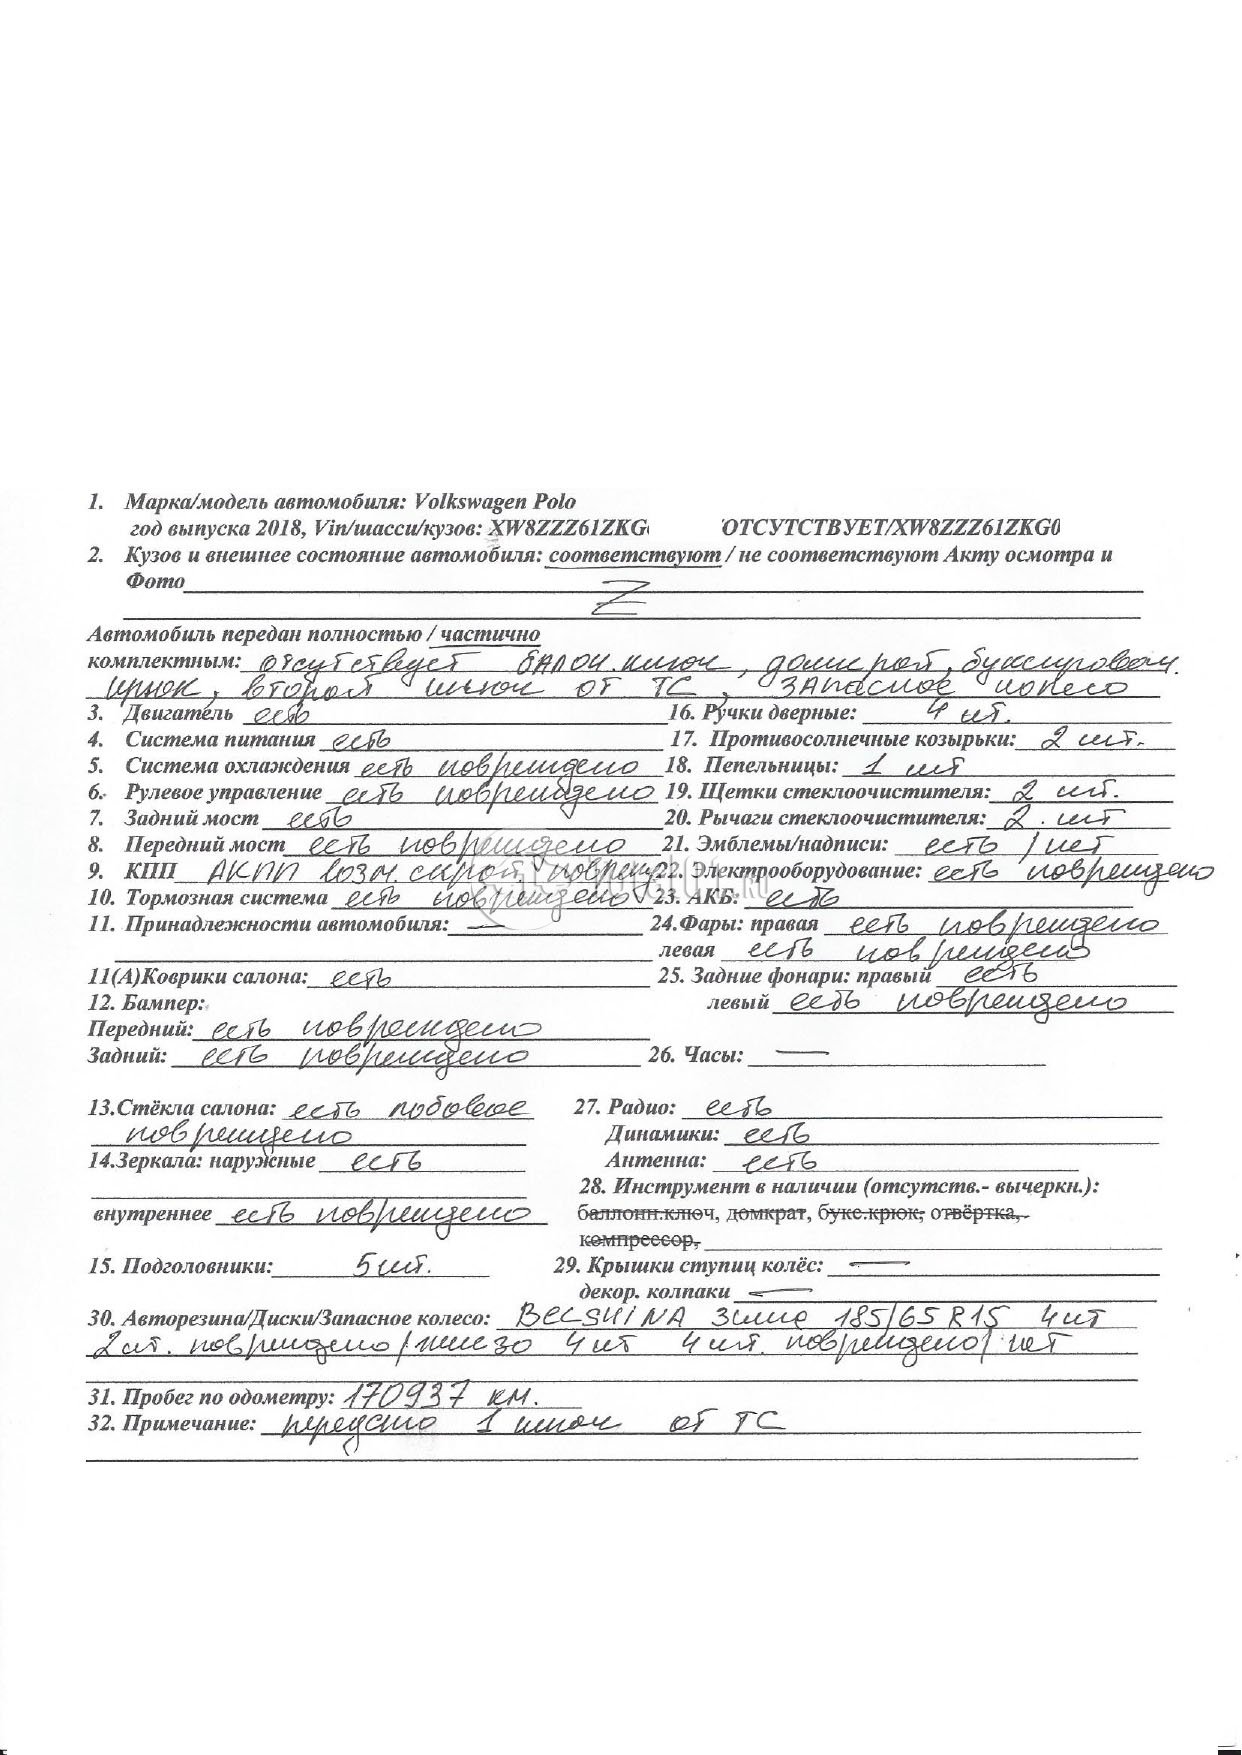 1. Марка/модель автомобиля: Volkswagen Polo
год выпуска 2018, Vin/шасси/кузов: XW8ZZZ61ZKG ОТСУТСТВУЕТ/XW8ZZZ61ZKG0
2. Кузов и внешнее состояние автомобиля: соответствуют / не соответствуют Акту осмотра и
Фото Z
Автомобиль передан полностью / частично
комплектным: отсутствует балон. ключ, домкрат, буксировочн.
крюк, второй ключ от ТС, запасное колесо
3. Двигатель есть 16. Ручки дверные: 4 шт.
4. Система питания есть 17. Противосолнечные козырьки: 2 шт.
5. Система охлаждения есть повреждено 18. Пепельницы: 1 шт
6. Рулевое управление есть повреждено 19. Щетки стеклоочистителя: 2 шт.
7. Задний мост есть 20. Рычаги стеклоочистителя: 2. шт
8. Передний мост есть повреждено 21. Эмблемы/надписи: есть / нет
9. КПП АКПП возм. скрыт. поврежд 22. Электрооборудование: есть повреждено
10. Тормозная система есть повреждено 23. АКБ: есть
11. Принадлежности автомобиля: — 24.Фары: правая есть повреждено
левая есть повреждено
11(А)Коврики салона: есть 25. Задние фонари: правый есть
12. Бампер: левый есть повреждено
Передний: есть повреждено
Задний: есть повреждено 26. Часы: —
13.Стёкла салона: есть лобовое 27. Радио: есть
повреждено Динамики: есть
14.Зеркала: наружные есть Антенна: есть
28. Инструмент в наличии (отсутств.- вычеркн.):
внутреннее есть повреждено баллонн.ключ, домкрат, букс.крюк, отвёртка,
компрессор,
15. Подголовники: 5 шт. 29. Крышки ступиц колёс: —
декор. колпаки —
30. Авторезина/Диски/Запасное колесо: BELSHINA зима 185/65 R15 4 шт
2 шт. повреждено / железо 4 шт 4 шт. повреждено / нет
31. Пробег по одометру: 170937 км.
32. Примечание: передано 1 ключ от ТС